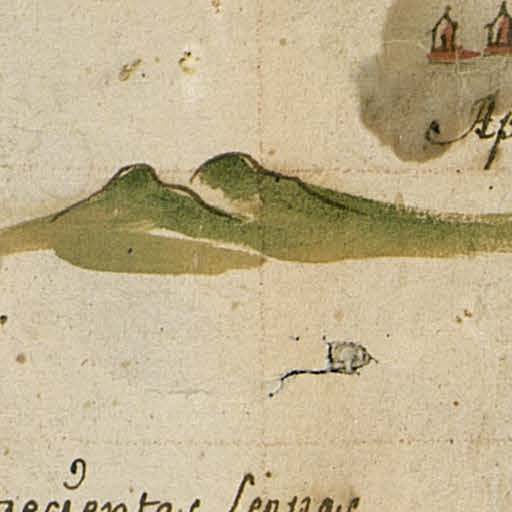 Ap
aecientas Leguas